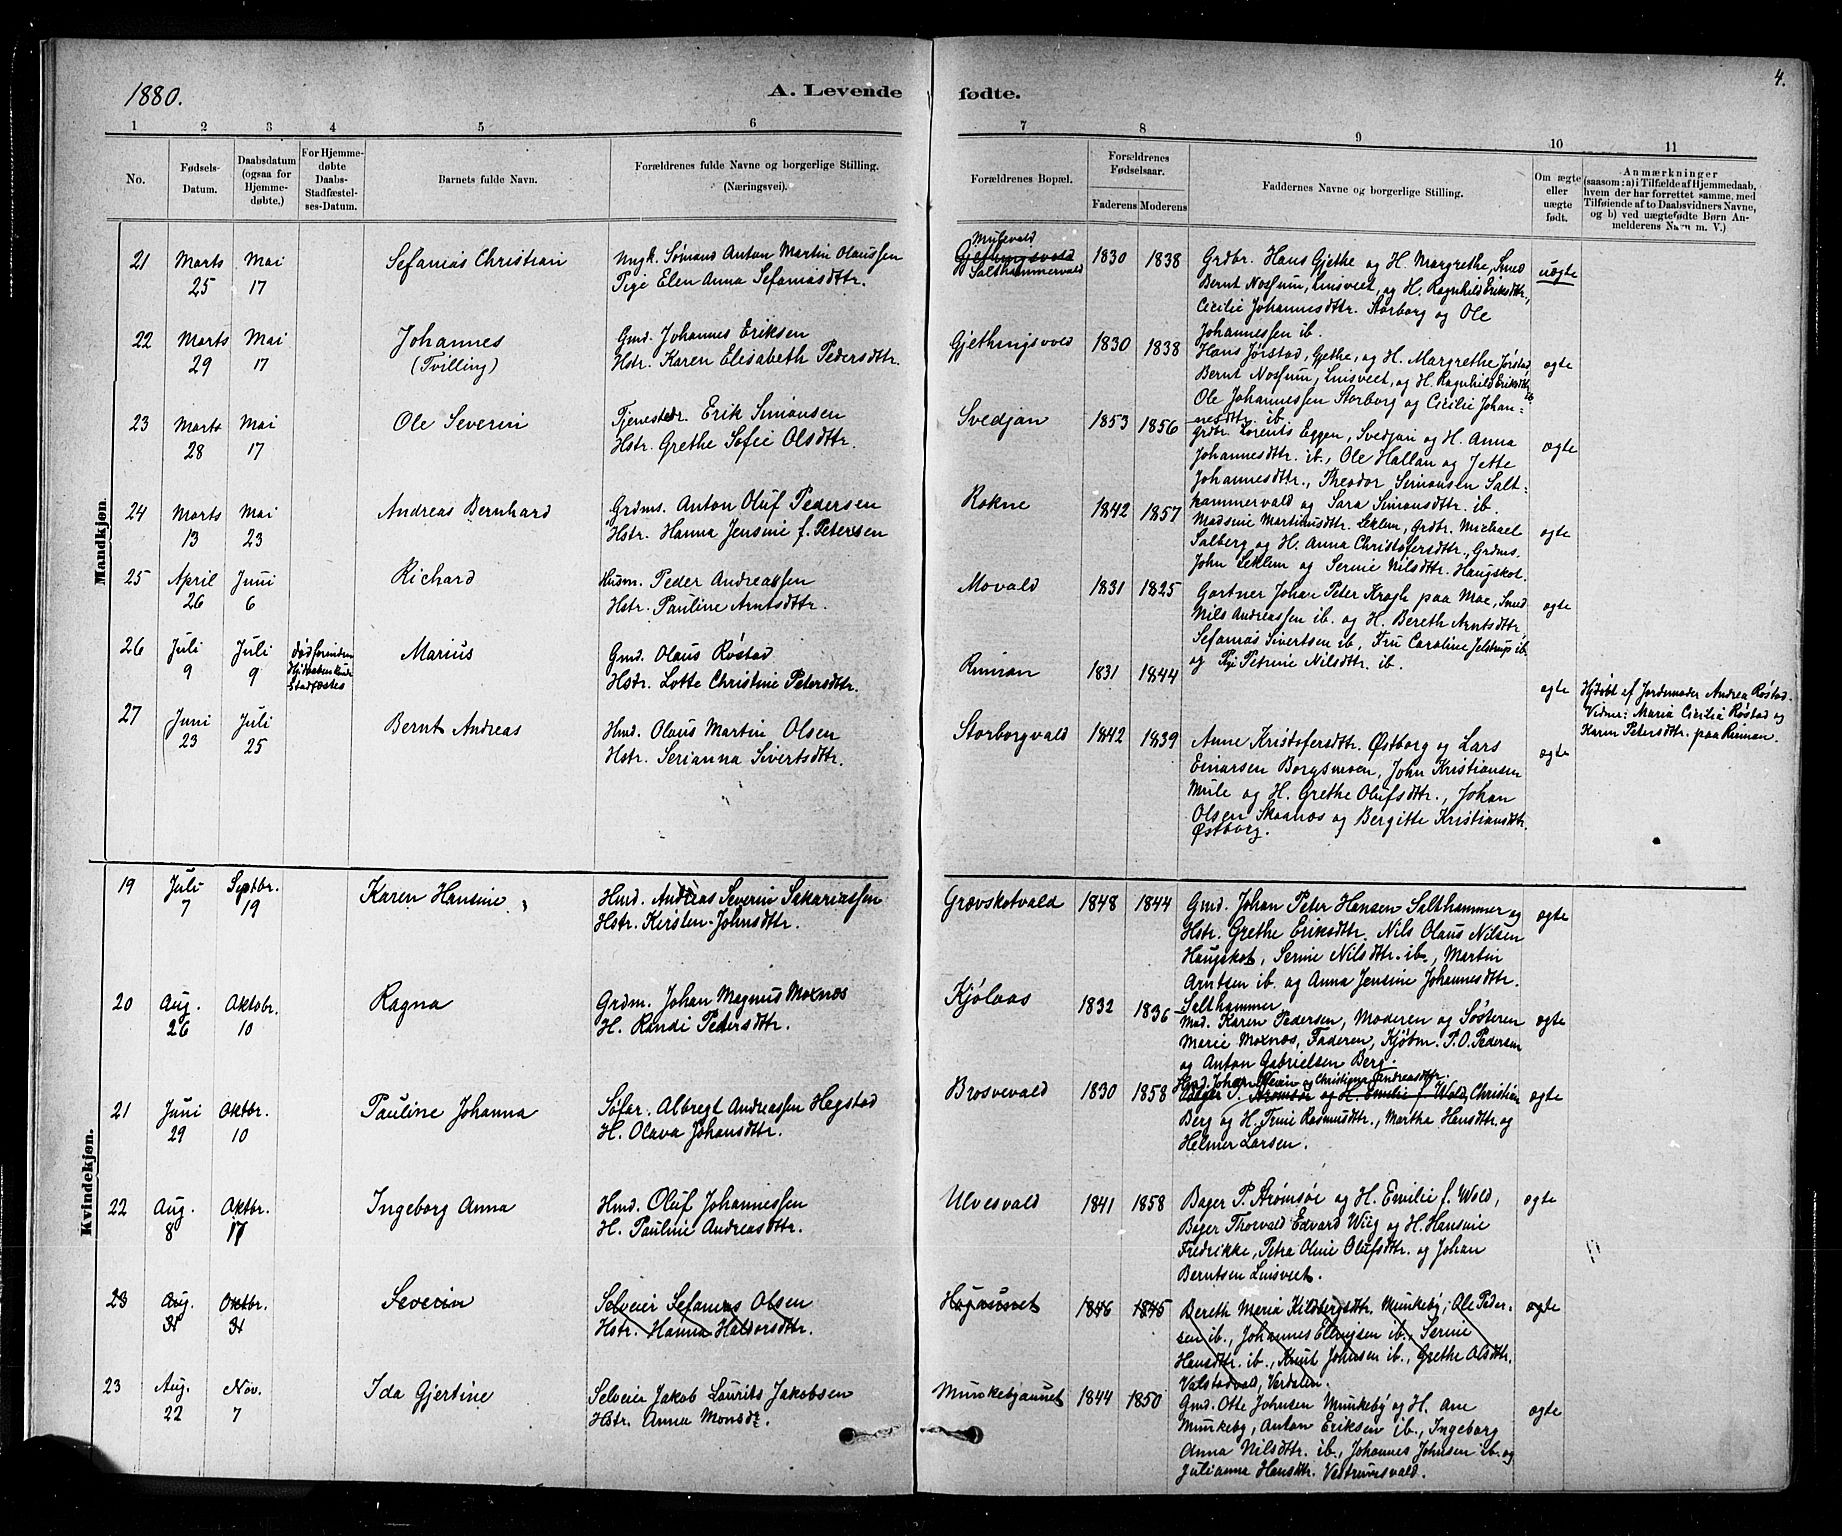 1880.
A. Levende fødte.
4.
1 2 3 4 5 6 7 8 9 10 11
No.
Fødsels-
Datum.
Daabsdatum
(ogsaa for
Hjemme-
døbte.)
For Hjemme-
døbte
Daabs-
Stadfæstel-
ses-Datum.
Barnets fulde Navn.
Forældrenes fulde Navne og borgerlige Stilling.
(Næringsvei).
Forældrenes Bopæl.
Forældrenes
Fødselsaar.
Faderens Moderens
Faddernes Navne og borgerlige Stilling.
Om ægte
eller
uægte
født.
Anmærkninger
(saasom: a) i Tilfælde af Hjemmedaab,
hvem der har forrettet samme, med
Tilføiende af to Daabsvidners Navne,
og b) ved uægtefødte Børn An-
melderens Navn m. V.)
Mandkjøn.
21 Marts 25 Mai 17
Sefanias Christian
Ungk. Sømand Anton Martin Olaussen
Pige Elen Anna Sefaniasdttr.
Mulevald
Gjethingsvold
Salthammervald
1830 1838
Grdbr. Hans Gjethe og H. Margrethe, Smed
Bernt Nossum, Linsveet, og H. Ragnhild Eriksdttr.,
Cicilie Johannesdttr. Storborg og Ole
Johannessen ib.
uægte
22 Marts 29 Mai 17
Johannes
(Tvilling)
Gmd. Johannes Eriksen
Hstr. Karen Elisabeth Pedersdttr.
Gjethingsvold
1830 1838
Hans Jørstad, Gjethe, og H. Margrethe Jørstad
Bernt Nossum, Linsveet, og H. Ragnhild Eriksdttr. ib
Ole Johannessen Storborg og Cicilie Johan-
nesdttr. ib.
ægte
23 Marts 28 Mai 17
Ole Severin
Tjenestedr. Erik Simonsen
Hstr. Grethe Sofie Olsdttr.
Svedjan
1853 1856
Grdbr. Lorents Eggen, Svedjan og H. Anna
Johannesdttr. ib., Ole Hallan og Jette
Johannesdttr., Theodor Simonsen Salt-
hammervald og Sara Simonsdttr. ib.
ægte
24 Marts 13 Mai 23
Andreas Bernhard
Grdms. Anton Oluf Pedersen
Hstr. Hanna Jensine f. Petersen
Rokne
1842 1857
Madsine Martinusdttr. Leklem, Grdbr. Michael
Salberg og H. Anna Christofersdttr., Grdms.
John Leklem og Serine Nilsdttr. Haugskot.
ægte
25 April 26 Juni 6
Richard
Husm. Peder Andreassen
Hstr. Pauline Arntsdttr.
Movald
1831 1825
Gartner Johan Peter Krogh paa Moe, Smed
Nils Andreassen ib. og H. Bereth Arntsdttr,
Sefanias Sivertsen ib, Fru Caroline Jelstrup ib
og Pige Petrine Nilsdttr. ib.
ægte
26 Juli 9 Juli 9
død forinden
Hjdaaben kunde
Stadfæstes
Marius
Gmd. Olaus Røstad
Hstr. Lotte Christine Petersdttr.
Rinnan
1831 1844
ægte
Hjdøbt af Jordemoder Andrea Røstad.
Vidner: Maria Cicilie Røstad og
Karen Petersdttr. paa Rinnan.
27 Juni 23 Juli 25
Bernt Andreas
Hmd. Olaus Martin Olsen
Hstr. Serianna Sivertsdttr.
Storborgvald
1842 1839
Anne Kristofersdttr. Østborg og Lars
Einarsen Borgsmoen, John Kristiansen
Mule og H. Grethe Olufsdttr., Johan
Olsen Skaanes og Bergitte Kristiansdttr.
Østborg.
ægte
Kvindekjøn.
19 Juli 7 Septbr. 19
Karen Hansine
Hmd. Andreas Severin Sakariassen
Hstr. Kirsten Johnsdttr.
Grævskotvald
1848 1844
Gmd. Johan Peter Hansen Salthammer og
Hstr. Grethe Eriksdttr, Nils Olaus Nilsen
Haugskot, Serine Nilsdttr. ib., Martin
Arntsen ib. og Anna Jensine Johannesdttr.
Salthammer
ægte
20 Aug. 26 Oktobr. 10
Ragna
Grdm. Johan Magnus Moxnæs
H. Randi Petersdttr.
Kjølaas
1832 1836
Mad. Karen Pedersen, Moderen og Søsteren
Marie Moxnæs, Faderen, Kjøbm. P. O. Pedersen
og Anton Gabrielsen Berg.
ægte
21 Juni 29 Oktbr. 10
Pauline Johanna
Søfar. Albregt Andreassen Hegstad
H. Olava Johansdttr.
Brosvevald
1830 1858
Hmd. Johan og Christiane Andreasdttr.
Bager P. Strømsøe og H. Emilie f. Wold, Christian
Berg og H. Trine Rasmusdttr., Martha Hansdttr. og
Helmer Larsen.
ægte
22 Aug. 8 Oktbr. 17
Ingeborg Anna
Hmd. Oluf Johannessen
H. Pauline Andreasdttr.
Ulvesvald
1841 1858
Bager P. Strømsøe og H. Emilie f. Wold,
Bager Thorvald Edvard Wiig og H. Hansine
Fredrikke, Petra Oline Olufsdttr. og Johan
Berntsen Linsveet.
ægte
23 Aug. 31 Oktbr. 31
Severin
Selveier Sefanias Olsen
Hstr. Hanna Haldorsdttr.
Hognunet
1846 1845
Bereth Maria Kildbergsdttr. Munkeby, Ole Peder-
sen ib., Johannes Ellingsen ib., Serine
Hansdttr. ib., Knut Johnsen ib., Grethe Olsdttr.
Valstadvald, Verdalen.
ægte
23 Aug. 22 Nov. 7
Ida Gjertine
Selveier Jakob Laurits Jakobsen
Hstr. Anna Monsdr.
Munkebyaunet
1844 1850
Gmd. Otte Johnsen Munkeby og H. Ane
Munkeby, Anton Eriksen ib., Ingeborg
Anna Nilsdttr. ib., Johannes Johnsen ib. og
Julianna Hansdttr. Vestrumsvald.
ægte